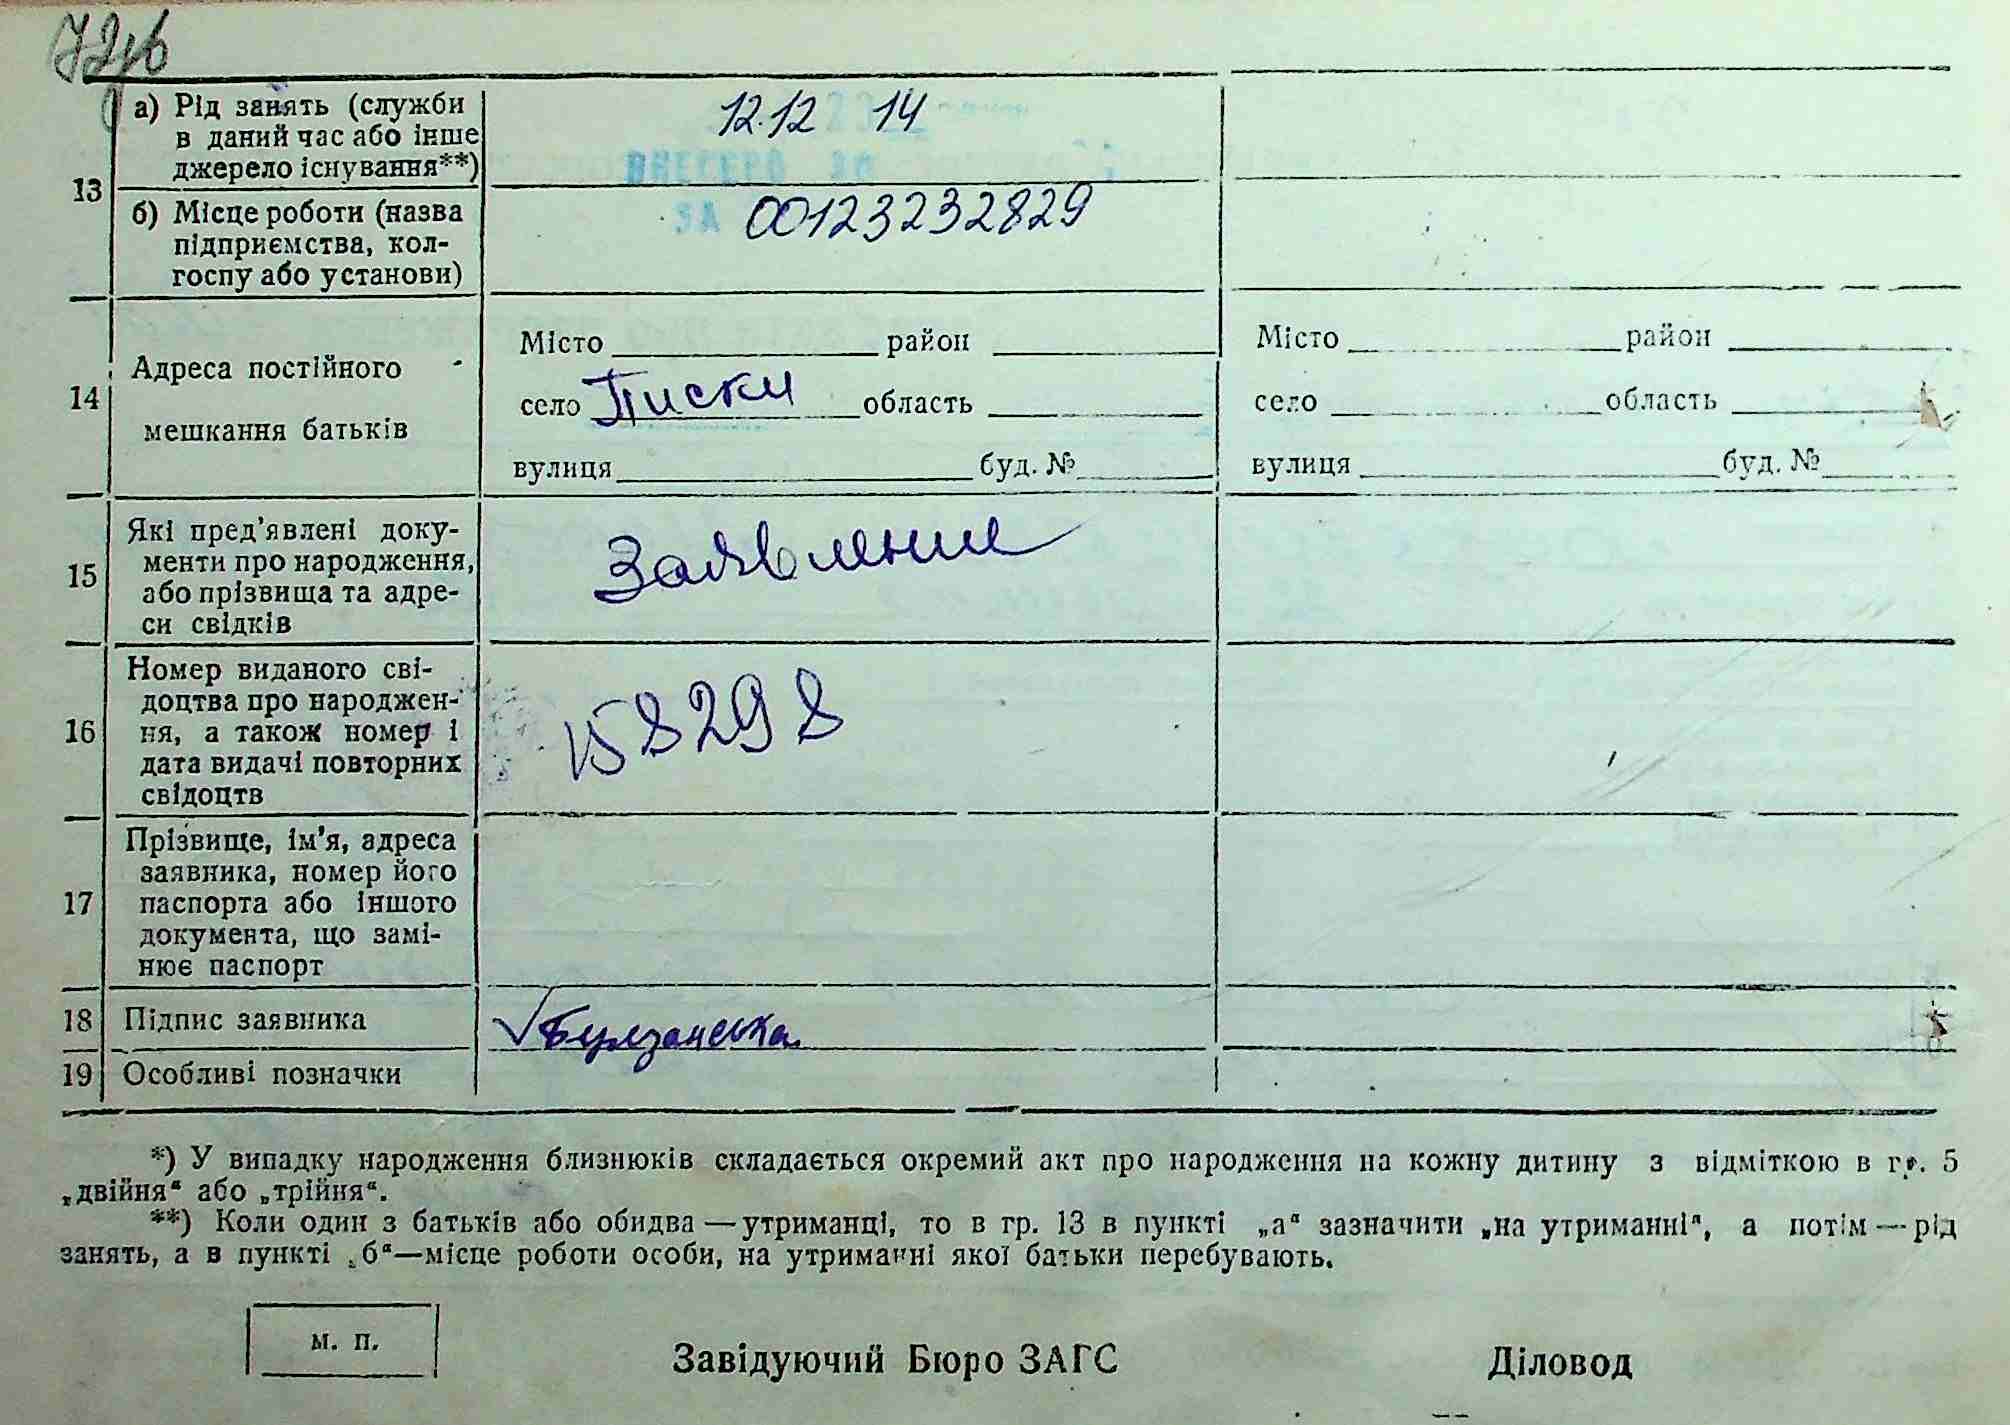 а) Рід занять (служби
в даний час або інше
джерело існування**)
12.12 14
ВНЕСЕНО ДО
13
б) Місце роботи (назва
підприємства, кол-
госпу або установи)
ЗА 00123232829
14
Адреса постійного
мешкання батьків
Місто район
село Писки область
вулиця буд. №
Місто район
село область
вулиця буд. №
15
Які пред’явлені доку-
менти про народження,
або прізвища та адре-
си свідків
Заявление
16
Номер виданого сві-
доцтва про народжен-
ня, а також номер і
дата видачі повторних
свідоцтв
158298
17
Прізвище, ім’я, адреса
заявника, номер його
паспорта або іншого
документа, що замі-
нює паспорт
18 Підпис заявника
19 Особливі позначки
*) У випадку народження близнюків складається окремий акт про народження на кожну дитину з відміткою в гр. 5
„двійня“ або „трійня“.
**) Коли один з батьків або обидва — утриманці, то в гр. 13 в пункті „а“ зазначити „на утриманні“, а потім — рід
занять, а в пункті „б“—місце роботи особи, на утриманні якої батьки перебувають.
м. п.
Завідуючий Бюро ЗАГС
Діловод